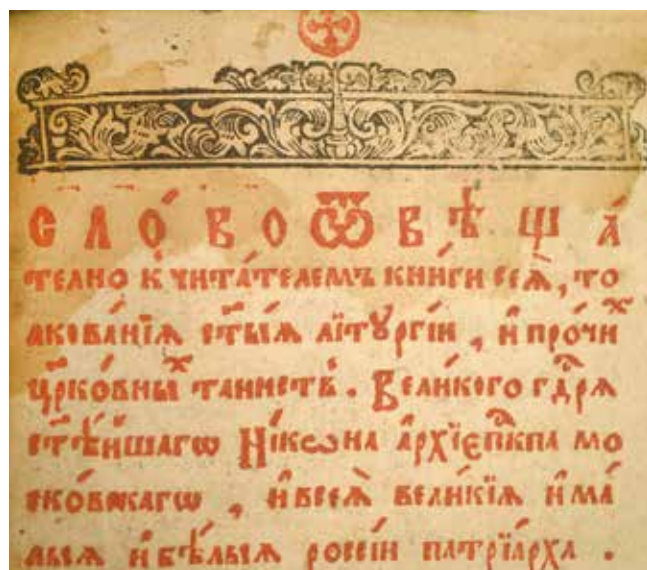 СЛО́ВО Ѿ ВѢЩА́
телно к̾ чита́телемъ кни́ги сеѧ̀, то
лкова́нїѧ ст҃ы́ѧ лїтꙋргі́и, и҆ про́чиⷯ
цр҃ко́вныⷯ таинстъ. Вели́кого гдⷭ҇рѧ
ст҃ѣ́йшагѡ Ні́кѡна а҆рхїепⷭ҇кпа мо
ско́вскагѡ, и҆ всеѧ̀ вели́кїѧ и҆ ма́
лыѧ и҆ бѣ́лыѧ росси́и патрїа́рха.